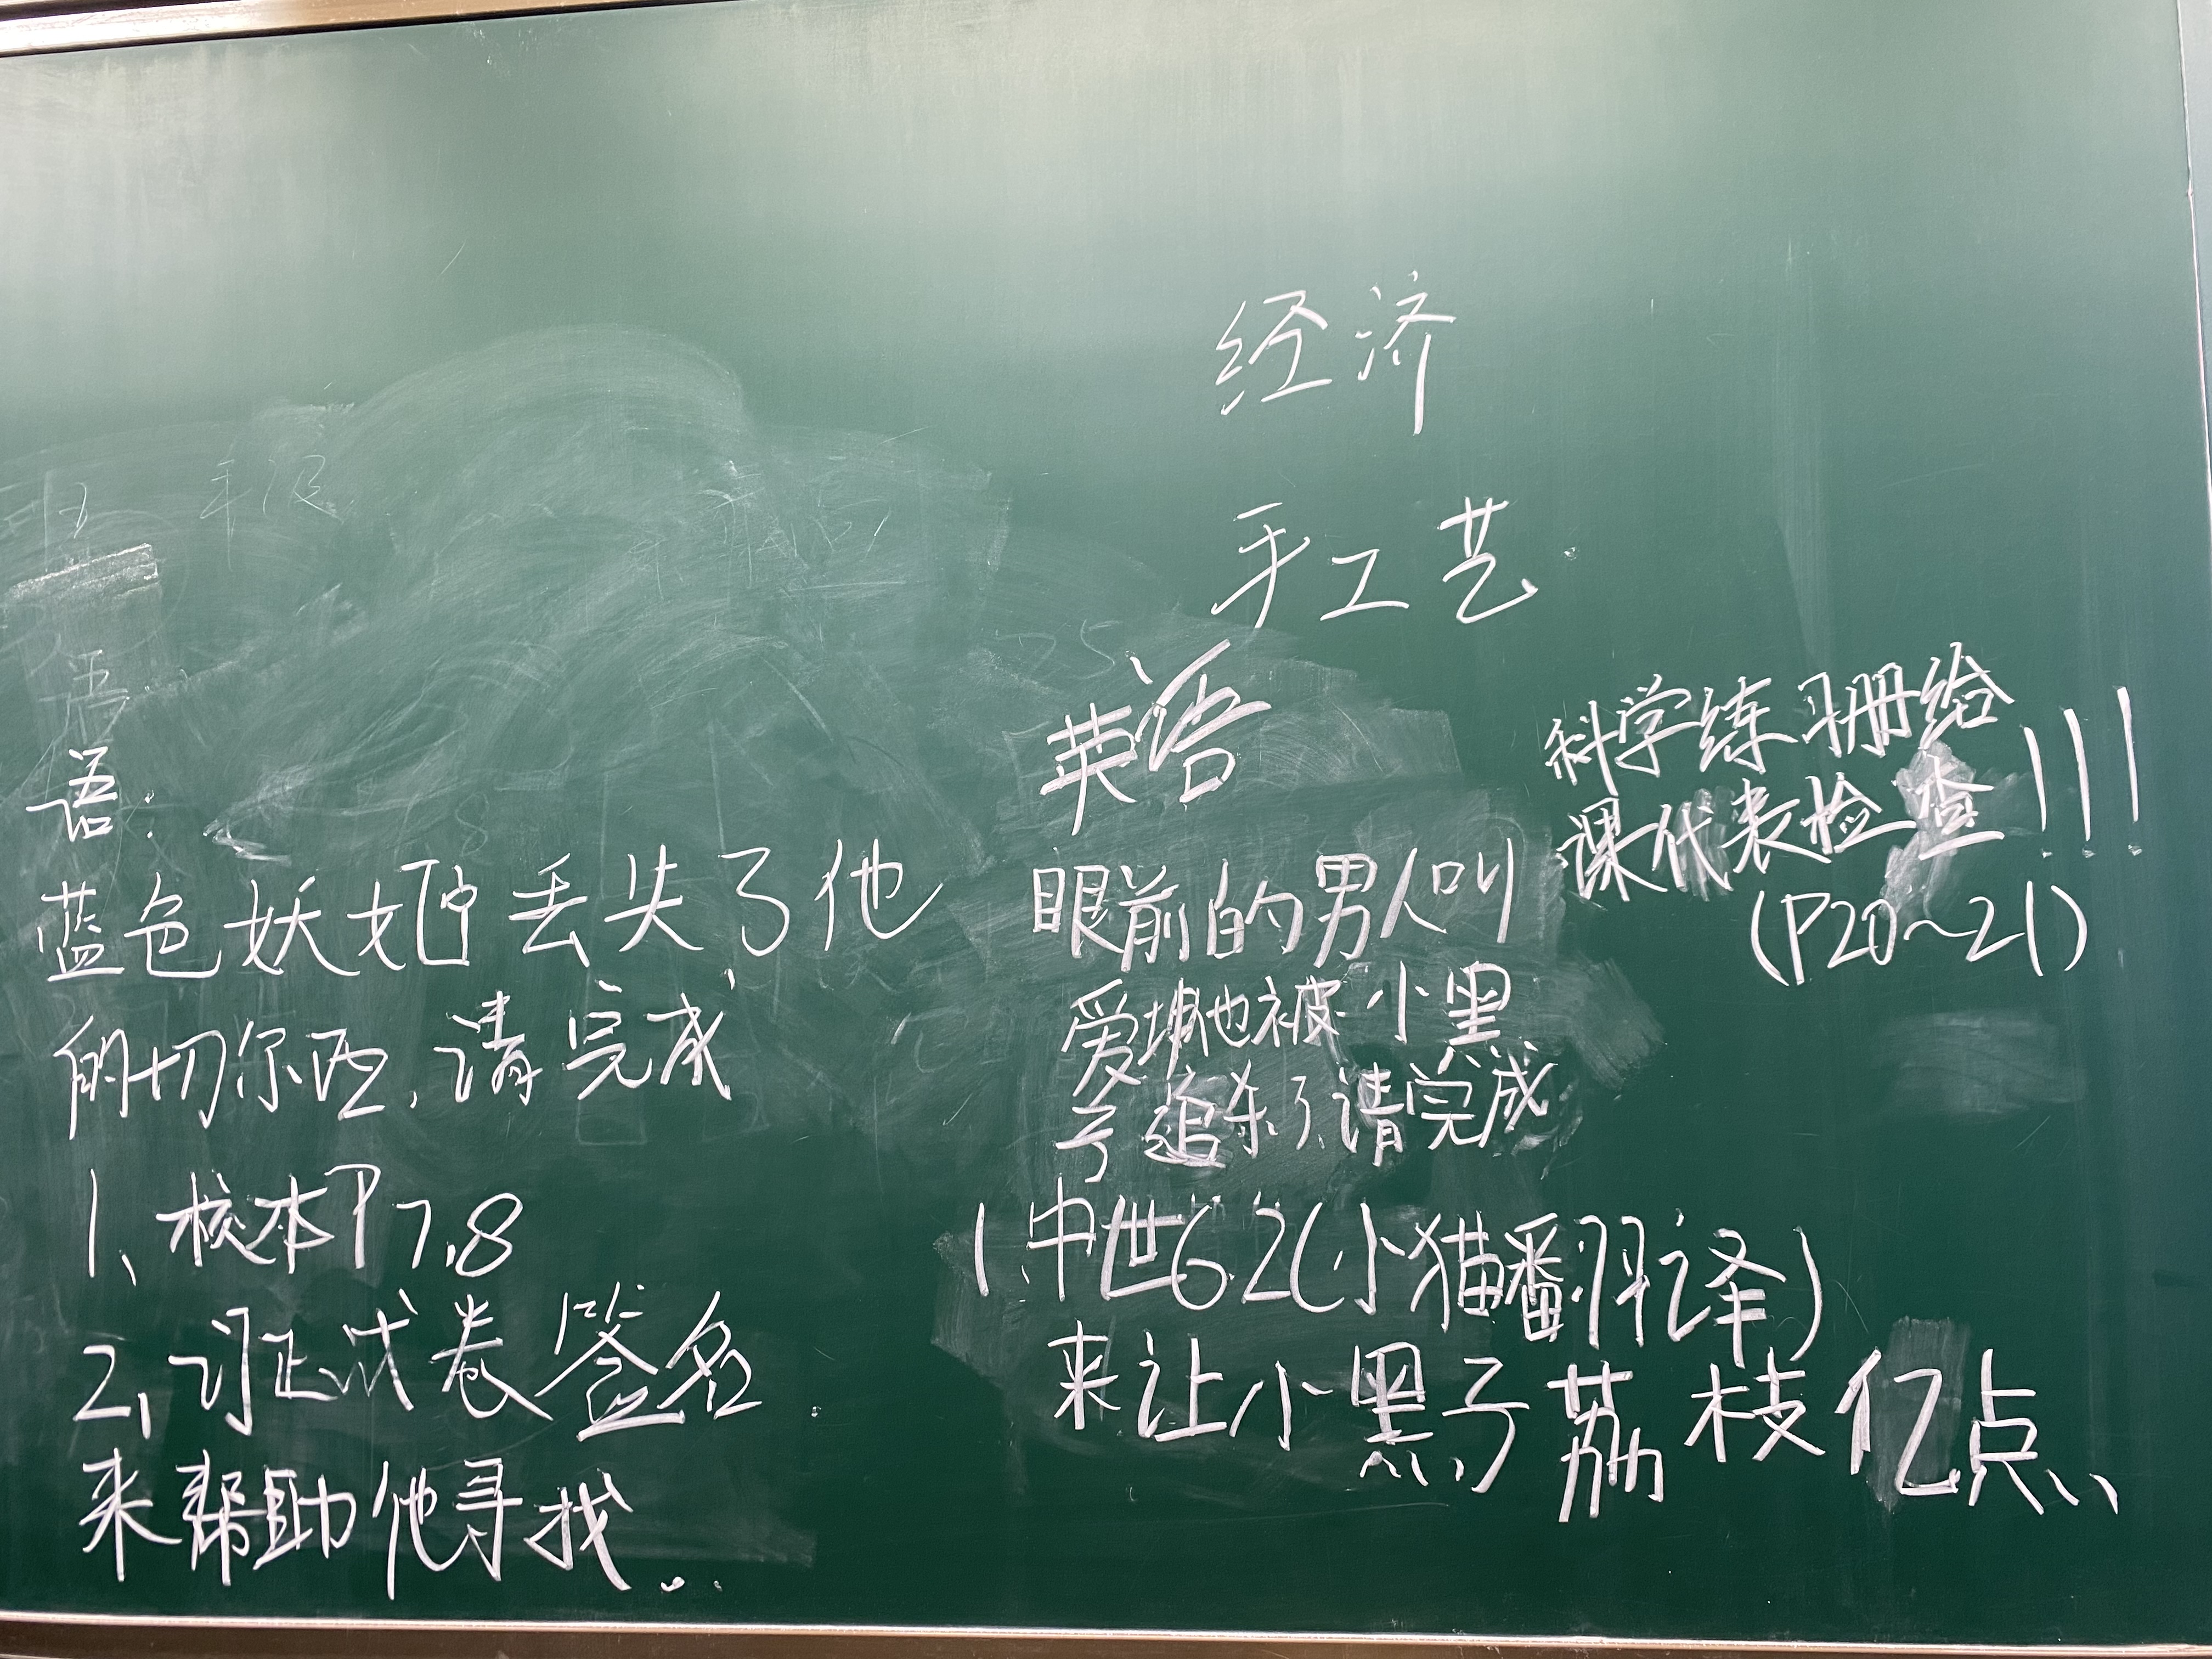 经济
手工艺
语:
蓝色妖姬丢失了他
的切尔西,请完成
1、校本P7,8
2、订正式卷签名.
来帮助他寻找...
英语
眼前的男人叫
爱坤他被小黑
子追杀了,请完成
1.中世6.2(小猫翻译)
来让小黑子荔枝亿点、、
科学练习册给
课代表检查!!!
(P20~21)